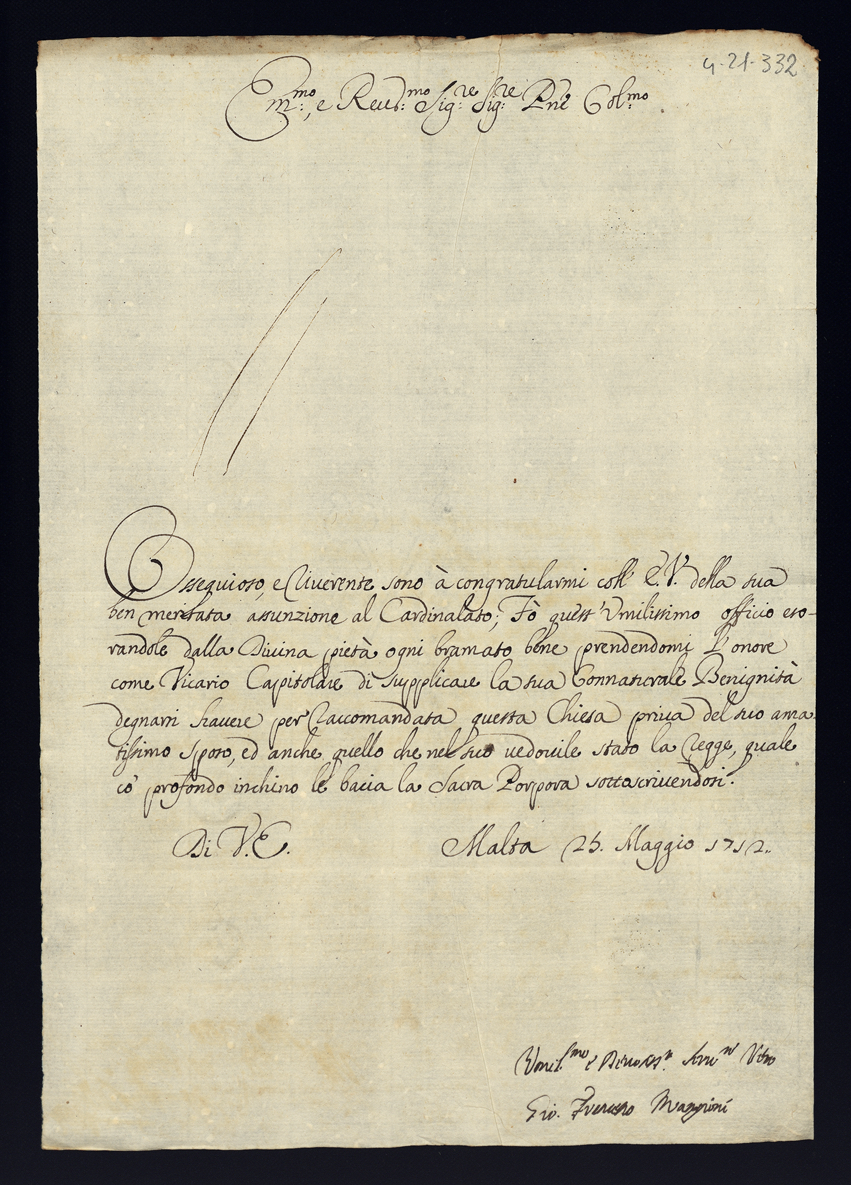 4-21-332
Em:mo, e Reud:mo Sig:re Sig:re Pne Col:mo
Ossequioso, e riverente sono à congratularmi coll' E.V. della sua
ben meritata assunzione al Cardinalato; Fò quest'Vmilissimo officio eso-
randole dalla Diuina pietà ogni bramato bene prendendomi l'onore
come Vicario Capitolare di supplicare la sua Connaturale Benignità
degnarsi hauere per raccomandata questa Chiesa priua del suo ama
tissimo sposo, ed anche quello che nel suo vedouile stato la regge, quale
co' profondo inchino le bacia la Sacra Porpora sottoscrivendosi.
Di V.E. Malta 25. Maggio 1712.
Vmil:mo e Deuot:
Gio.